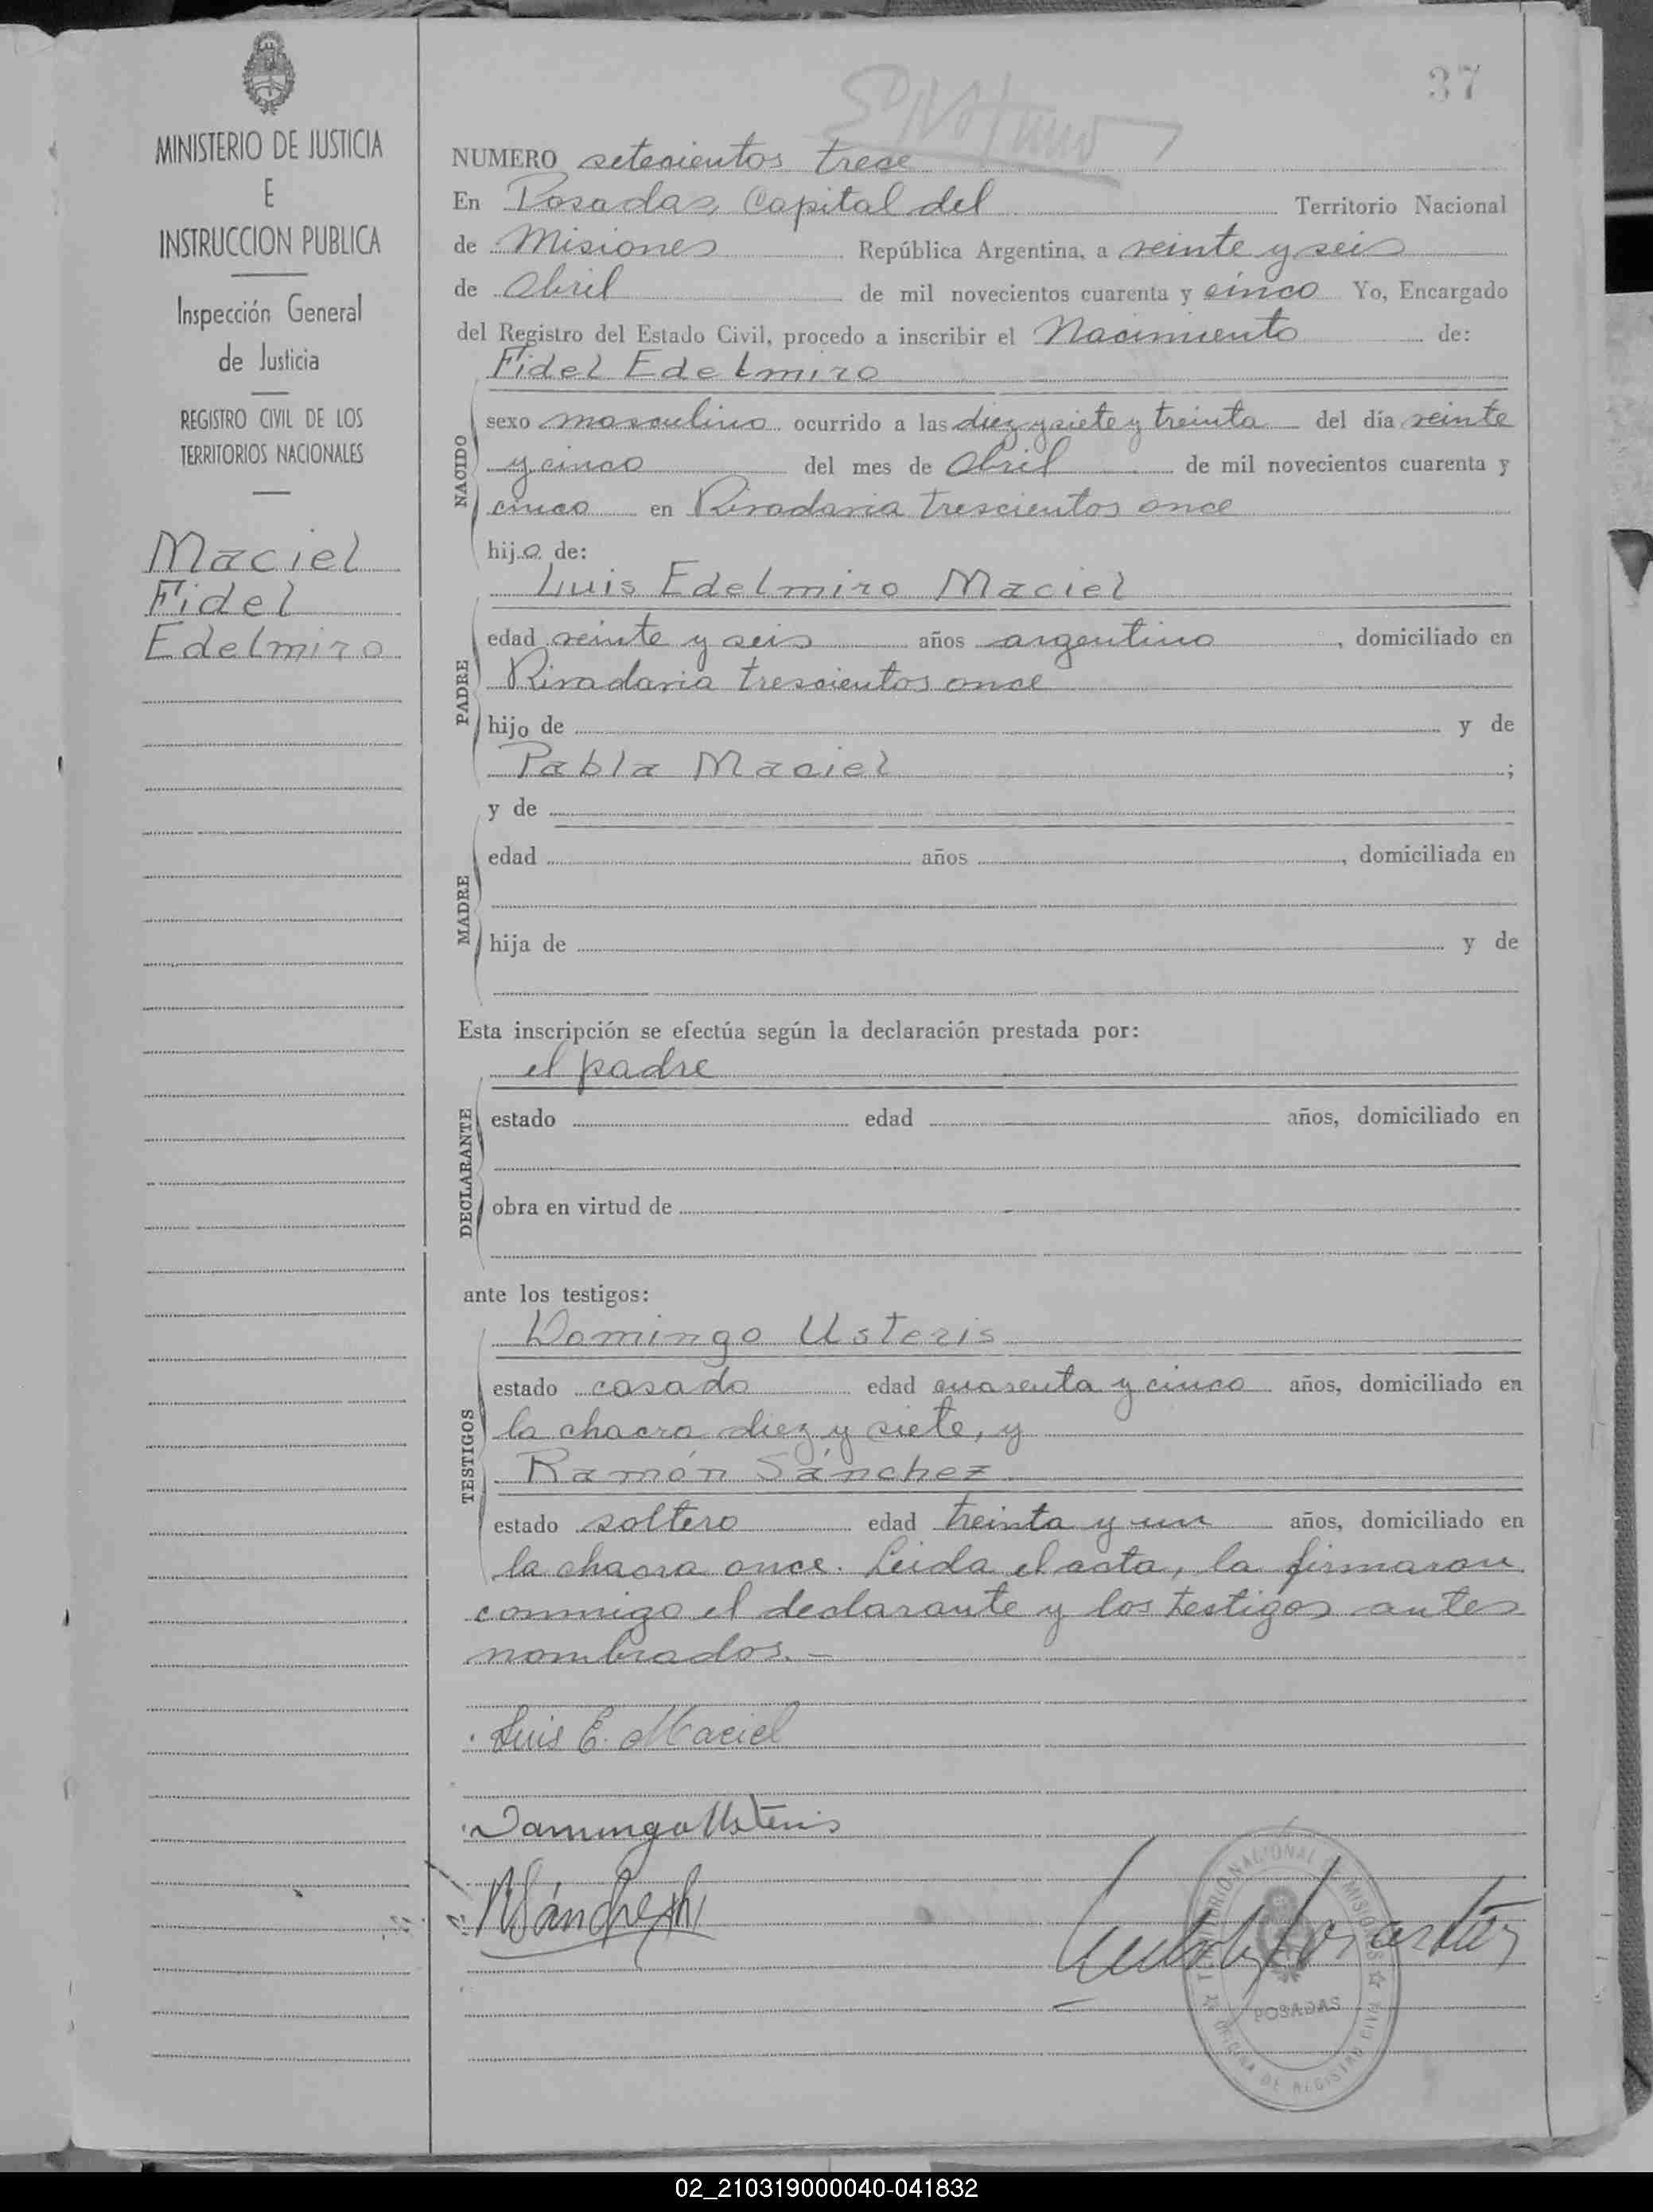 37
MINISTERIO DE JUSTICIA
E
INSTRUCCION PUBLICA
Inspección General
de Justicia
REGISTRO CIVIL DE LOS
TERRITORIOS NACIONALES
Maciel
Fidel
Edelmiro
NUMERO setecientos trece
En Posadas, Capital del Territorio Nacional
de Misiones República Argentina, a veinte y seis
de Abril de mil novecientos cuarenta y cinco Yo, Encargado
del Registro del Estado Civil, procedo a inscribir el Nacimiento de:
Fidel Edelmiro
NACIDO
sexo masculino ocurrido a las diez y siete y treinta del día veinte
y cinco del mes de Abril de mil novecientos cuarenta y
cinco en Rivadavia trescientos once
hijo de:
Luis Edelmiro Maciel
PADRE
edad veinte y seis años argentino, domiciliado en
Rivadavia trescientos once
hijo de y de
Pabla Maciel ;
y de
MADRE
edad años , domiciliada en
hija de y de
Esta inscripción se efectúa según la declaración prestada por:
el padre
DECLARANTE
estado edad años, domiciliado en
obra en virtud de
ante los testigos:
TESTIGOS
Domingo Usteris
estado casado edad cuarenta y cinco años, domiciliado en
la chacra diez y siete, y
Ramón Sánchez
estado soltero edad treinta y un años, domiciliado en
la chacra once. Leida el acta, la firmaron
conmigo el declarante y los testigos antes
nombrados. –
Luis E. Maciel
Domingo Usteris
RSánchez
TERRITORIO NACIONAL MISIONES
POSADAS
OFICINA DE REGISTRO CIVIL
02_210319000040-041832